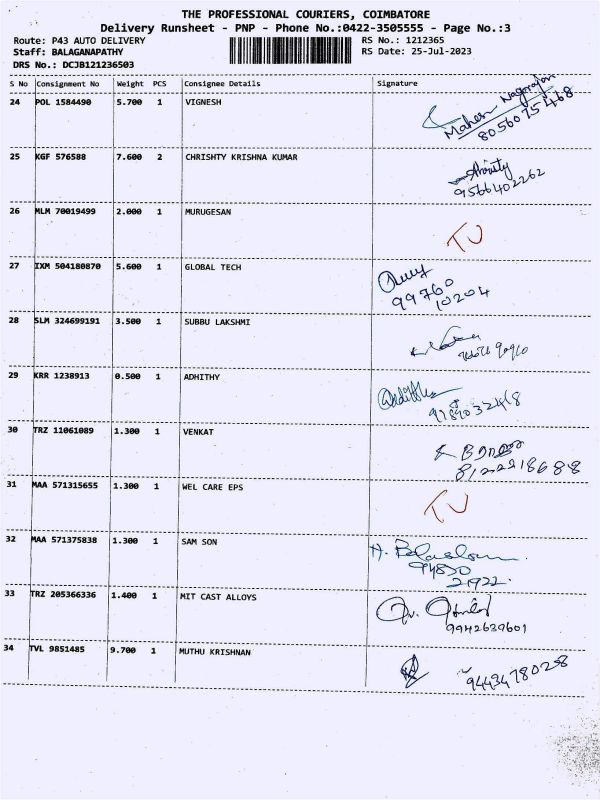 THE PROFESSIONAL COURIERS, COIMBATORE
Delivery Runsheet - PNP - Phone No.:0422-3505555 - Page No.:3
Route: P43 AUTO DELIVERY RS No.: 1212365
Staff: BALAGANAPATHY RS Date: 25-Jul-2023
DRS No.: DCJB121236503
S No Consignment No Weight PCS Consignee Details Signature
24 POL 1584490 5.700 1 VIGNESH
Mahesh Nagarajan
8056075468
25 KGF 576588 7.600 2 CHRISHTY KRISHNA KUMAR
9566402262
26 MLM 70019499 2.000 1 MURUGESAN
TU
27 IXM 504180870 5.600 1 GLOBAL TECH
99760
10204
28 SLM 324699191 3.500 1 SUBBU LAKSHMI
29 KRR 1238913 0.500 1 ADHITHY
30 TRZ 11061089 1.300 1 VENKAT
8122218688
31 MAA 571315655 1.300 1 WEL CARE EPS
TU
32 MAA 571375838 1.300 1 SAM SON
94830
21922
33 TRZ 205366336 1.400 1 MIT CAST ALLOYS
9942639601
34 TVL 9851485 9.700 1 MUTHU KRISHNAN
9443478028